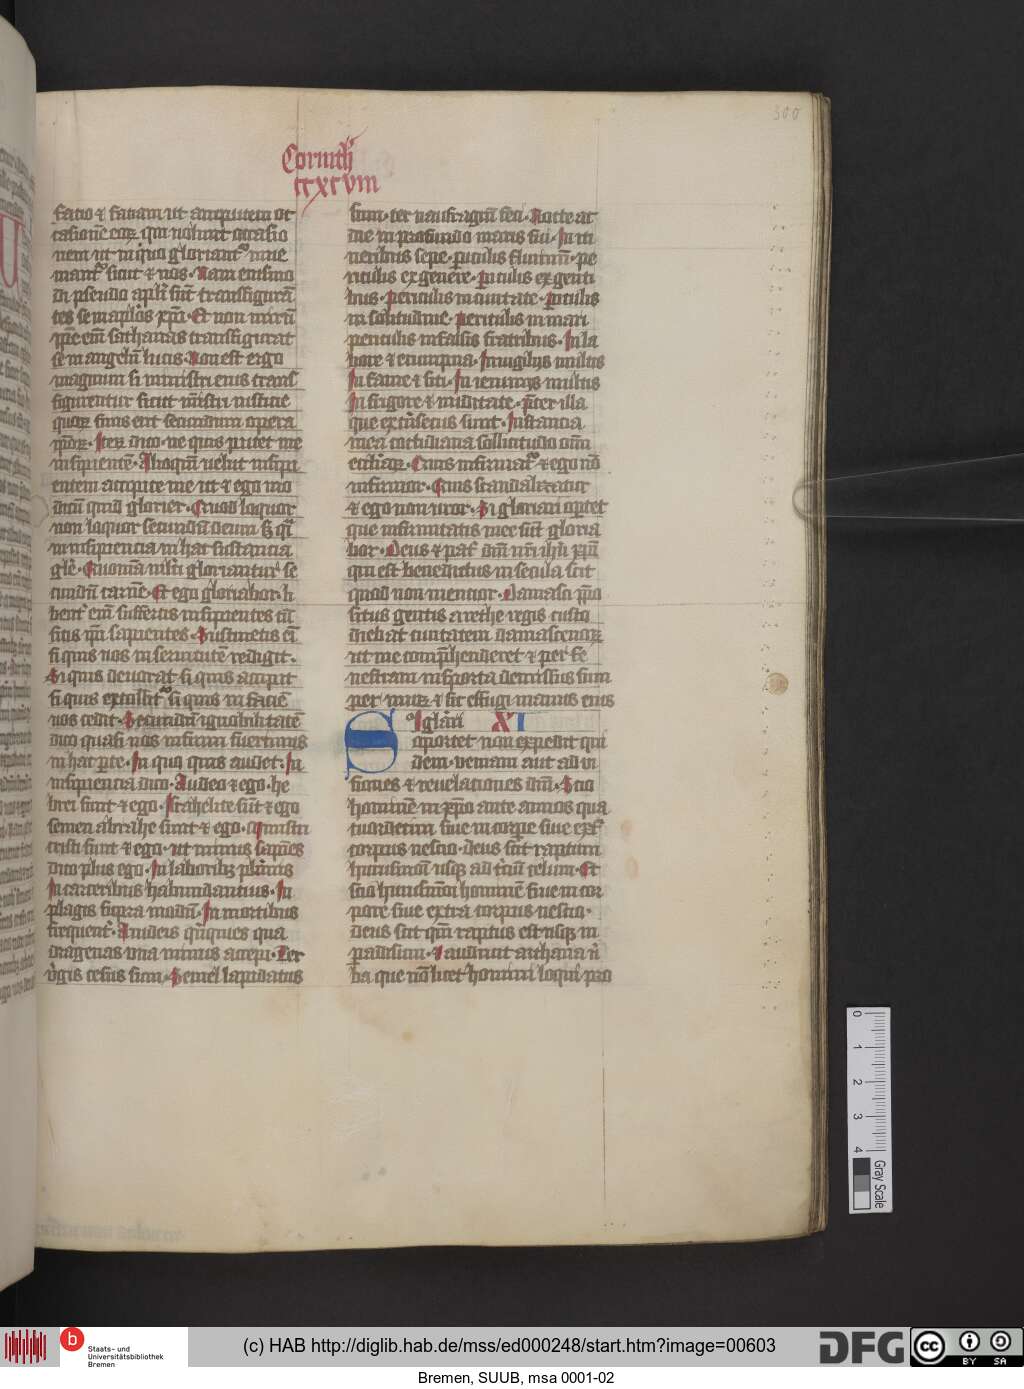 300
Corinth
ccxcviii
facio ⁊ faciam ut amputem oc
casionē eoꝝ qui uolunt occasio
nem ut in quo gloriantᷣ inue
niantᷣ sicut ⁊ nos. Nam eiusmo
di pseudo apl'i sūt transfigurā
tes se in apl'os xp̄i. Et non mirū
ip̄e eni sathanas transfigurat
se in angelū lucis. Non est ergo
magnum si ministri eius trans
figurentur sicut mīstri iusticie
quoꝝ finis erit secundum opera
ip̄oꝝ. Iteꝝ dico ne quis putet me
insipientē. Alioquin uelut insipi
entem accipite me ut ⁊ ego mo
dicū quid glorier. Quod loquor
non loquor secundū deum sꝫ q̄si
in insipiencia in hac substancia
gl'e. Quoniā ml'ti gloriantur se
cundū carnē. Et ego gloriabor. li
bent' eni suffertis insipientes cū
sitis ip̄i sapientes. Sustinetis eī
si quis uos in seruitutē redigit.
Si quis deuorat si quis accipit
si quis extollitᷣ si quis in faciē
uos cedit. Secundū ignobilitatē
dico quasi nos infirmi fuerimus
in hac ꝑte. In quo quis audet. In
insipiencia dico. Audeo ⁊ ego. he
brei sunt ⁊ ego. Israhelite sūt ⁊ ego
semen abrahe sunt ⁊ ego. Ministri
cristi sunt ⁊ ego. ut minus sapiēs
dico plus ego. In laboribꝫ plurimis
In carceribus habundantius. In
plagis supra modū. In mortibus
frequent'. A iudeis quinquies qua
dragenas una minus accepi. Ter
uirgis cesus sum. Semel lapidatus
sum. ter naufragiū feci. Nocte ac
die in profundo maris fui. In iti
neribus sepe. ꝑiculis fluminū. pe
riculis ex genere. ꝑiculis ex genti
bus. Periculis in ciuitate. ꝑiculis
in solitudine. Periculis in mari
periculis in falsis fratribus. In la
bore ⁊ erumpna. In uigiliis multis
In fame ⁊ siti. In ieiuniis multis
In frigore ⁊ nuditate. p̄ter illa
que extīsecus sunt. Instancia
mea cothidiana sollicitudo oīm
eccl'iaꝝ. Quis infirmatᷣ ⁊ ego nō
infirmor. Quis scandalizatur
⁊ ego non uror. Si gloriari oportet
que infirmitatis mee sūt gloria
bor. Deus ⁊ pat' dn̄i nr̄i ih'u xp̄i
qui est benedictus in secula scit
quod non mentior. Damasci p̄po
situs gentis arethe regis custo
diebat ciuitatem damascenoꝝ
ut me comp̄henderet ⁊ per fe
nestram in sporta demissus sum
per muꝝ ⁊ sic effugi manus eius
Si glari XI
oportet non expedit qui
dem. veniam aut ad ui
siones ⁊ reuelationes dn̄i. Scio
hominē in xp̄o ante annos qua
tuordecim siue in corpe siue ext'
corpus nescio. deus scit raptum
huiusmōi usqꝫ ad t'ciū celum. Et
scio huiusmōi hominē siue in cor
pore siue extra corpus nescio.
deus scit qm̄ raptus est usqꝫ in
padisum. ⁊ audiuit archana ū
ba que nō licet homini loqui pro
0 1 2 3 4
Gray Scale
b
Staats- und
Universitätsbibliothek
Bremen
(c) HAB http://diglib.hab.de/mss/ed000248/start.htm?image=00603
DFG
cc
BY SA
Bremen, SUUB, msa 0001-02